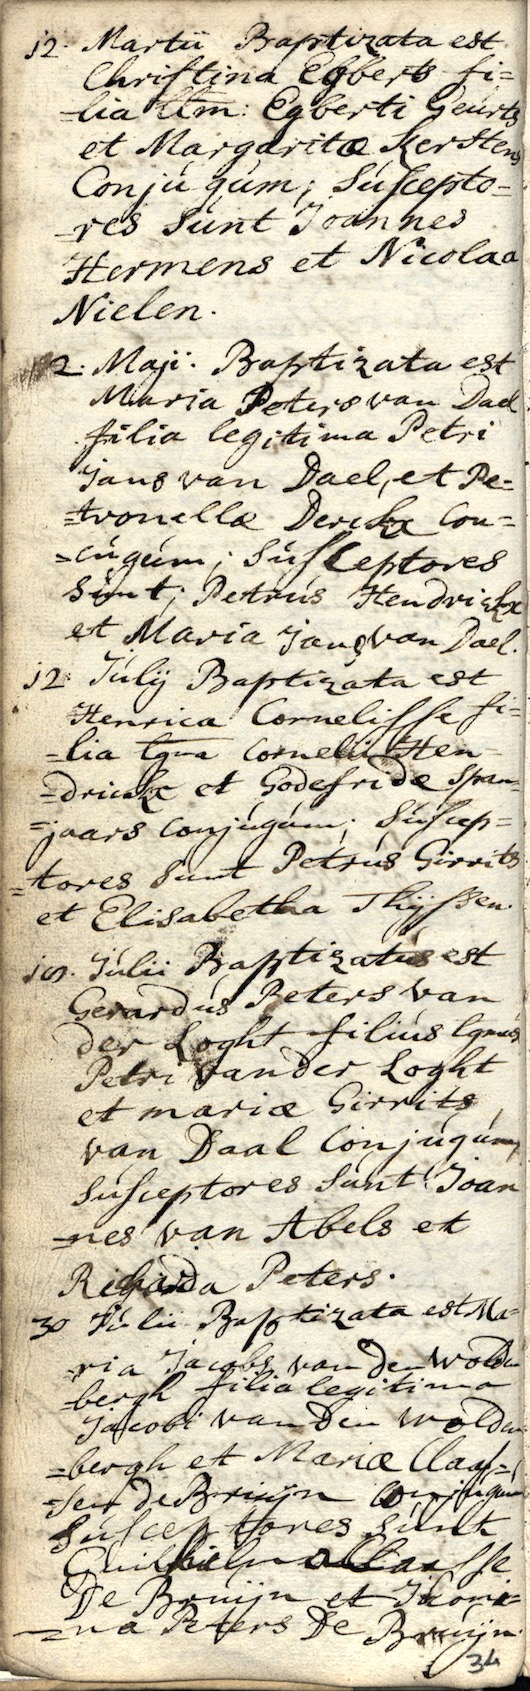 12. Martii Baptizata est
Christina Egberts fi=
=lia ltm: Egberti Geurts
et Margaritæ Kersten
Conjúgúm; Súscepto=
=res súnt Joannes
Hermens et Nicolaa
Nielen.
2. Maji. Baptizata est
Maria Peters van Dael
filia legitima Petri
Jans van Dael, et Pe=
=tronellæ Derickx Con=
=cúgúm; Súsceptores
súnt; Petrús Hendrickx
et Maria Jans van Dael.
12. Júlij Baptizata est
Henrica Cornelisse fi=
=lia lgma Cornelii Hen
=drickx et Godefridæ Span=
=jaars conjúgúm; Súscep=
=tores sunt Petrús Girrits
et Elisabetha Thijssen.
Júlii Baptizatús est
Gerardús Peters van
der Loght filiús lgmus
Petri van der Loght
et mariæ Girrits
van Daal Conjúgúm,
Súsceptores súnt Joan
=nes van Abels et
Richarda Peters.
30 Júlii Baptizata est Ma=
ria Jacobs van den Wolden
=bergh filia legitima
Jacobi van den Wolden
=bergh et Mariæ Claas=
=sen de Bruijn Conjugum
Súsceptores súnt
Claasse
De Bruijn et Jacomi=
=na Peters De Bruijn.
34